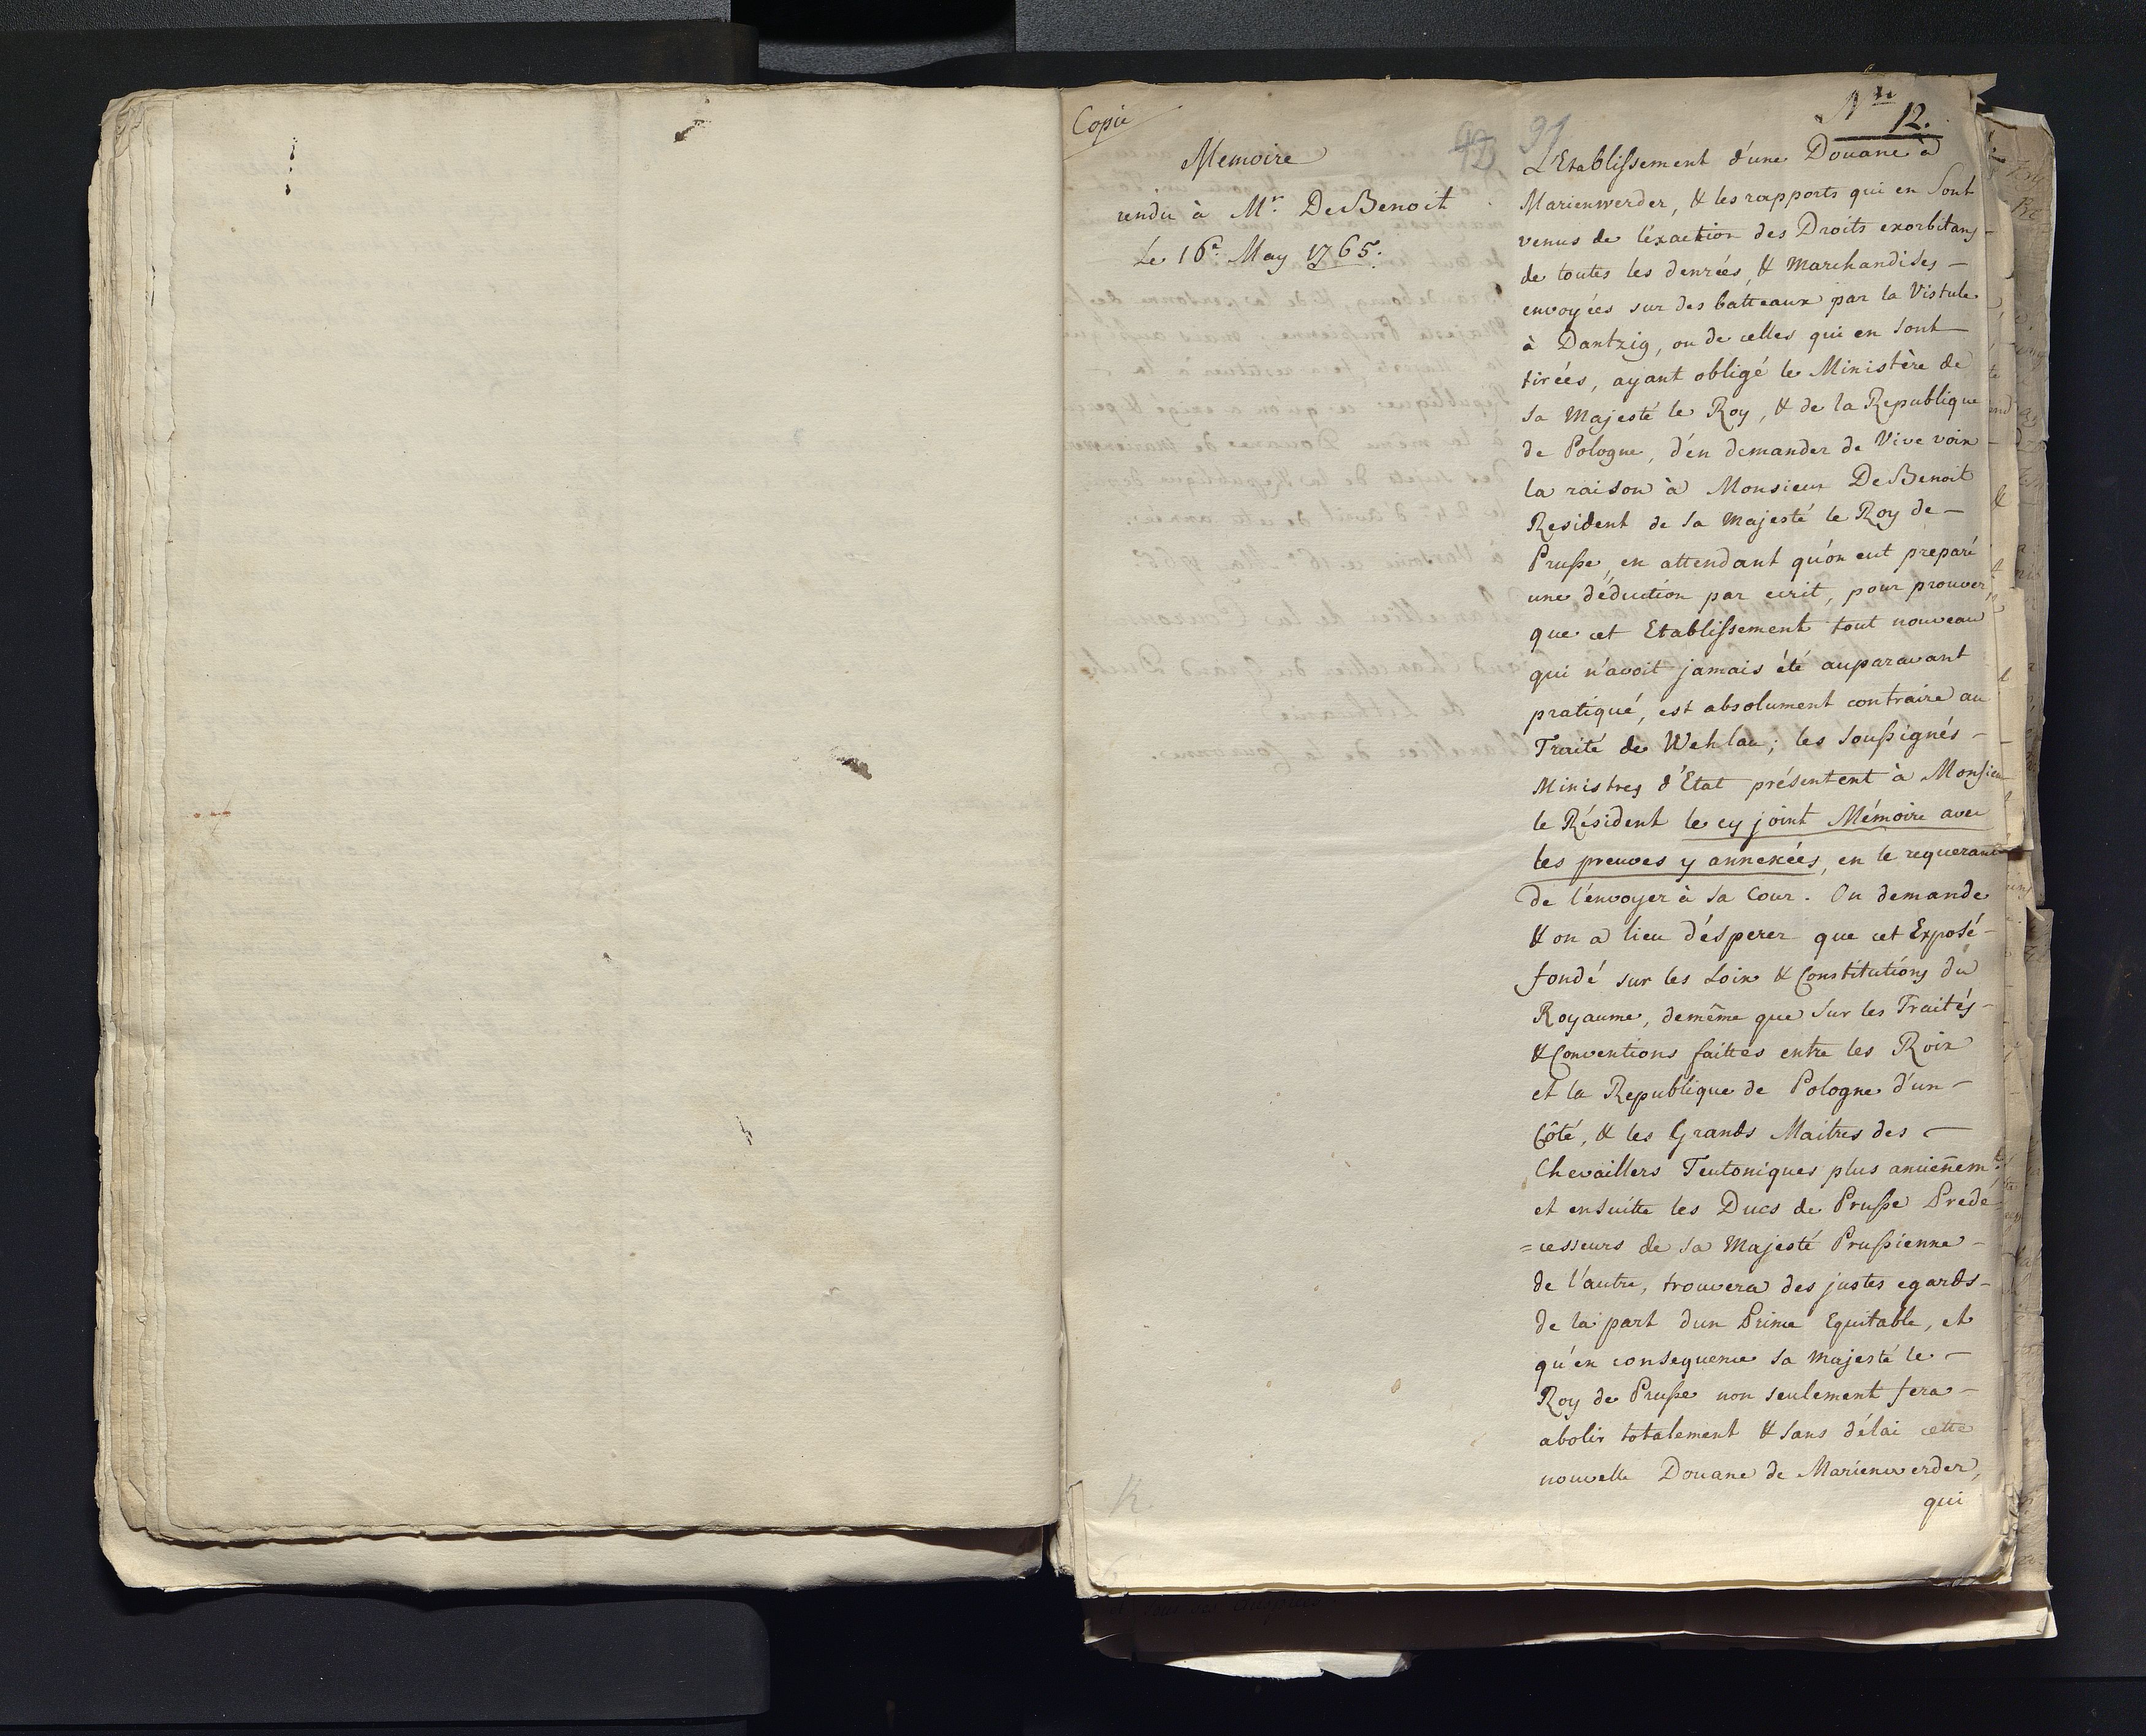 Copie
Memoire
rendu à Mr. De Benoit
Le 16e May 1765.
91
No
12.
L'Etablissement d'une Douane à
Marienwerder, & les rapports qui en sont
venus de l'éxaction des Droits exorbitans
de toutes les denrées & Marchandises
envoyées sur des batteaux par la Vistule
à Dantzig, ou de celles qui en sont
tirées, ayant obligé le Ministère de
Sa Majesté le Roy, & de la Republique
de Pologne, d'en demander de Vive voix
la raison à Monsieur De Benoit
Resident de Sa Majesté le Roy de
Prusse, en attendant qu'on eut preparé
une déduction par ecrit, pour prouver
que cet Etablissement tout nouveau
qui n'avoit jamais été auparavant
pratiqué, est absolument contraire au
Traité de Wehlau; les soussignés
Ministres d'Etat présentent à Monsieu
le Résident le cy joint Mémoire avec
les preuves y annexées, en le requerant
de l'envoyer à sa Cour. On demande
& on a lieu d'ésperer que cet Exposé
fondé sur les Loix & Constitutions du
Royaume, demême que sur les Traités
& Conventions faittes entre les Roix
et la Republique de Pologne d'un
Côté, & les Grands Maitres des
Chevaillers Teutoniques plus anciem̃emt.
et ensuitte les Ducs de Prusse Prédé
=cesseurs de Sa Majesté Prussienne
de l'autre, trouvera des justes egards
de la part dun Prince Equitable, et
qu'en consequence Sa Majesté le
Roy de Prusse non seulement fera
abolir totalement & sans délai cette
nouvelle Douane de Marienwerder,
qui